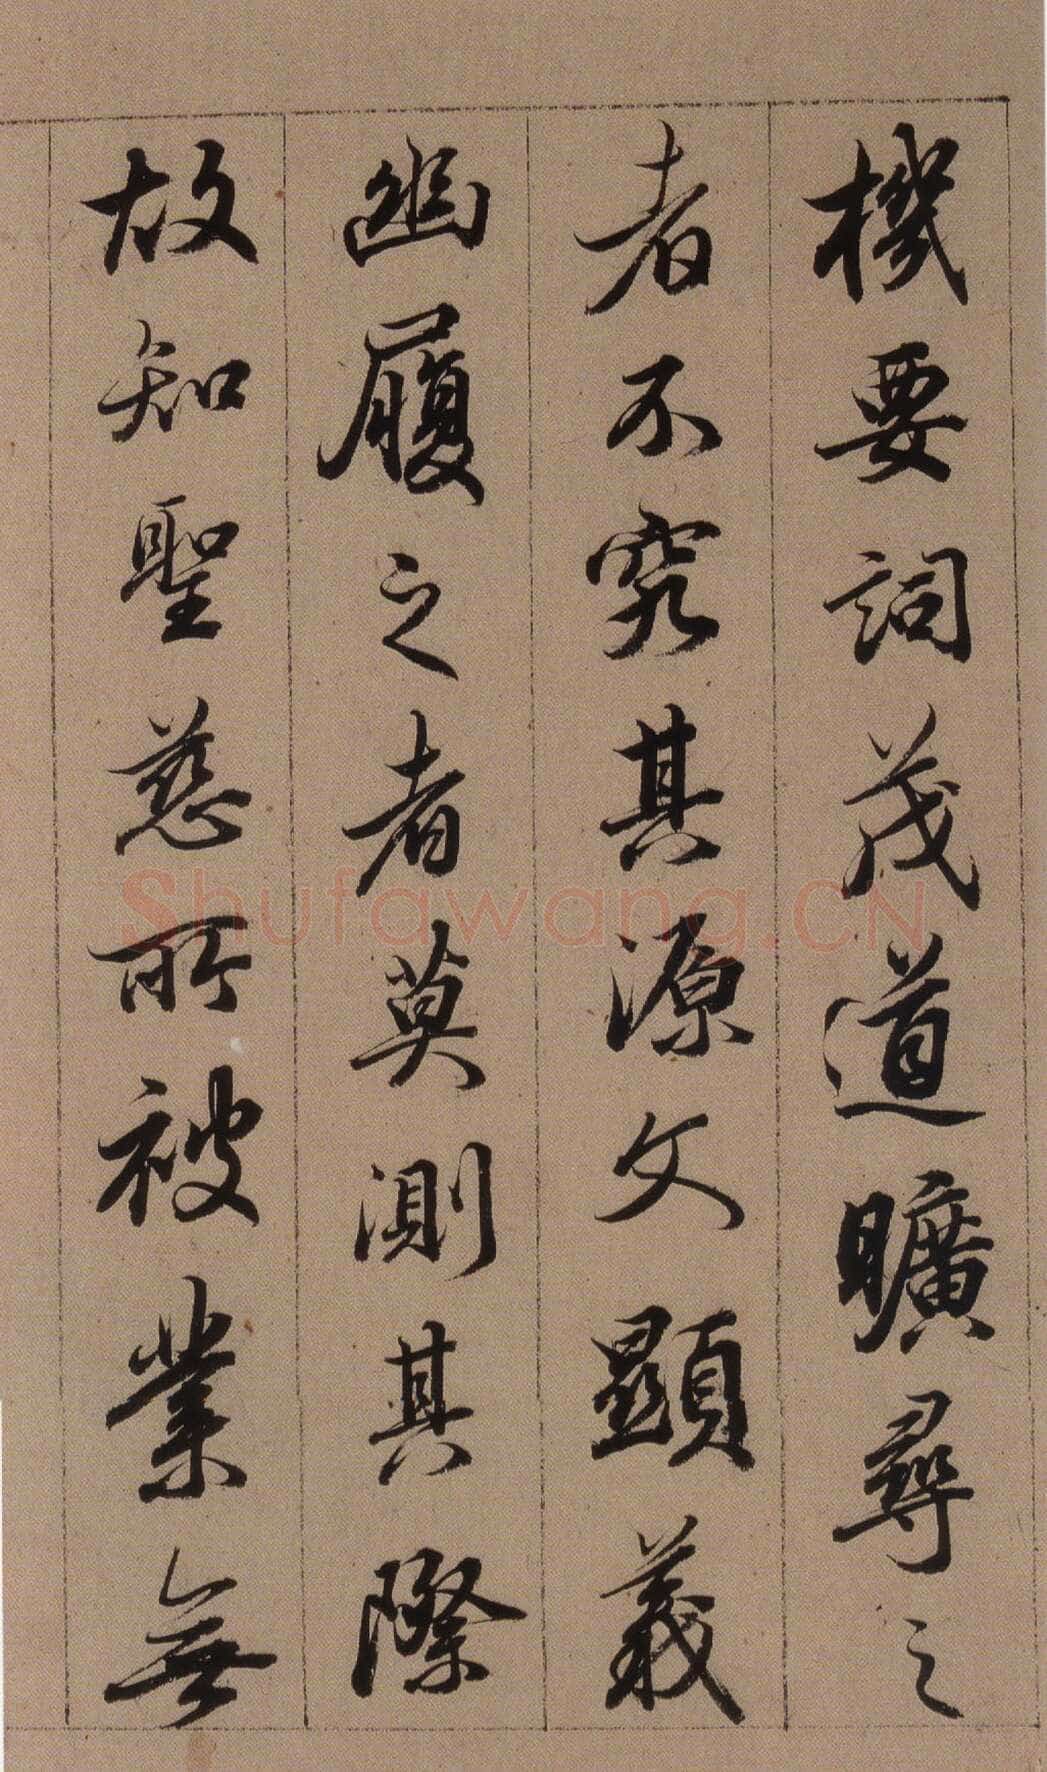 機要詞茂道曠尋之
者不究其源文顯義
幽履之者莫測其際
故知聖慈所被業無
Shufawang.CN